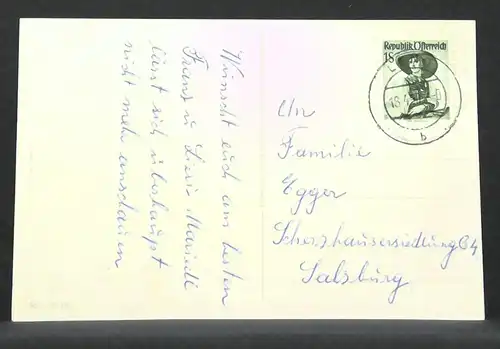 Wünscht euch am besten
Franz u. Liesi Mariedl
lässt sich überhaupt
nicht mehr anschauen
Republik Österreich
18
b
An
Familie
Egger
Scherzhausersiedlung C4
Salzburg